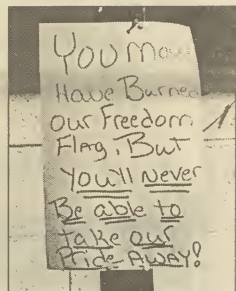 You May
Have Burned
our Freedom
Flag, But
You'll Never
Be able to
take our
Pride AWAY!